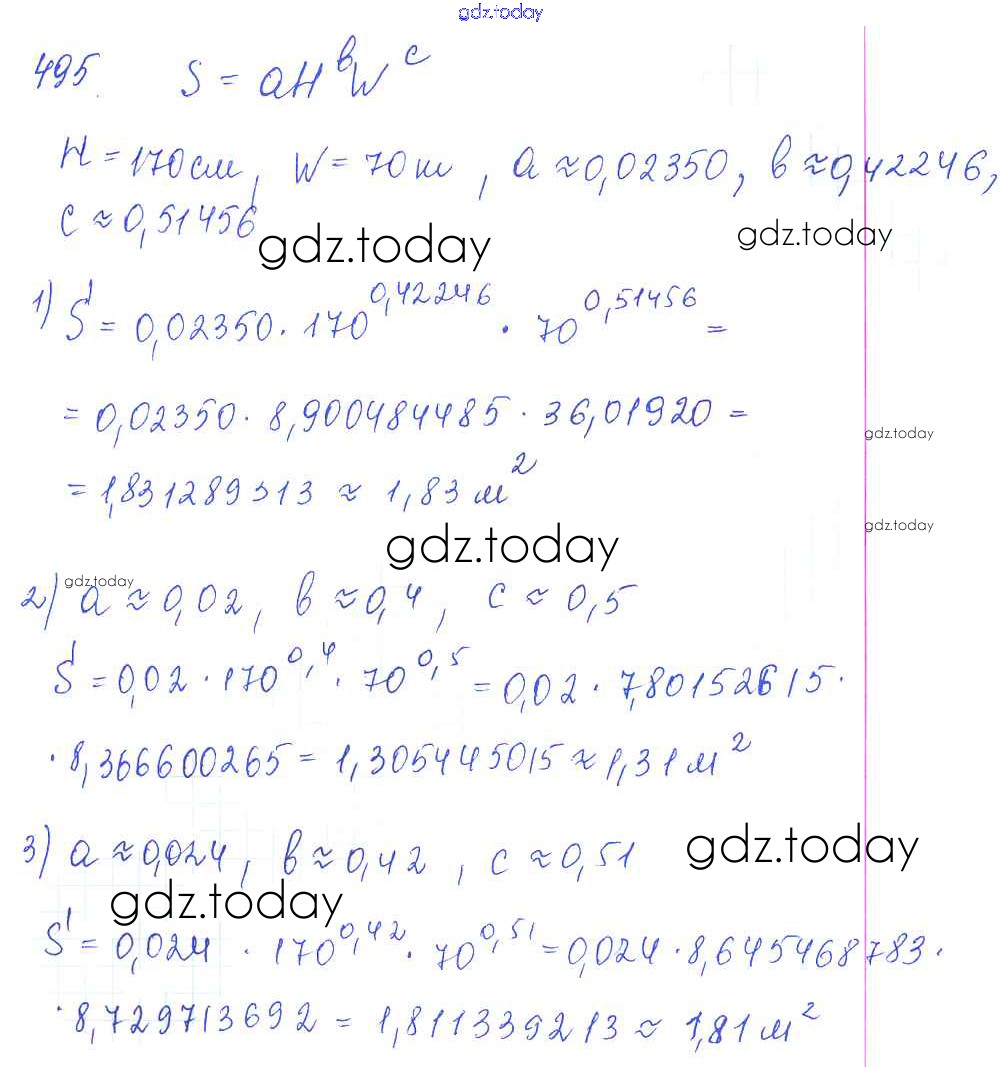 gdz.today
495. S = aH^b W^c
H = 170 см, W = 70 кг, a ≈ 0,02350, b ≈ 0,42246,
c ≈ 0,51456
gdz.today
gdz.today
1) S = 0,02350 · 170^0,42246 · 70^0,51456 =
= 0,02350 · 8,900484485 · 36,01920 =
gdz.today
= 1,831289313 ≈ 1,83 м²
gdz.today
gdz.today
gdz.today
2) a ≈ 0,02, b ≈ 0,4, c ≈ 0,5
S = 0,02 · 170^0,4 · 70^0,5 = 0,02 · 7,80152615 ·
· 8,366600265 = 1,305445015 ≈ 1,31 м²
3) a ≈ 0,024, b ≈ 0,42, c ≈ 0,51
gdz.today
gdz.today
S = 0,024 · 170^0,42 · 70^0,51 = 0,024 · 8,645468783 ·
· 8,729713692 = 1,811339213 ≈ 1,81 м²